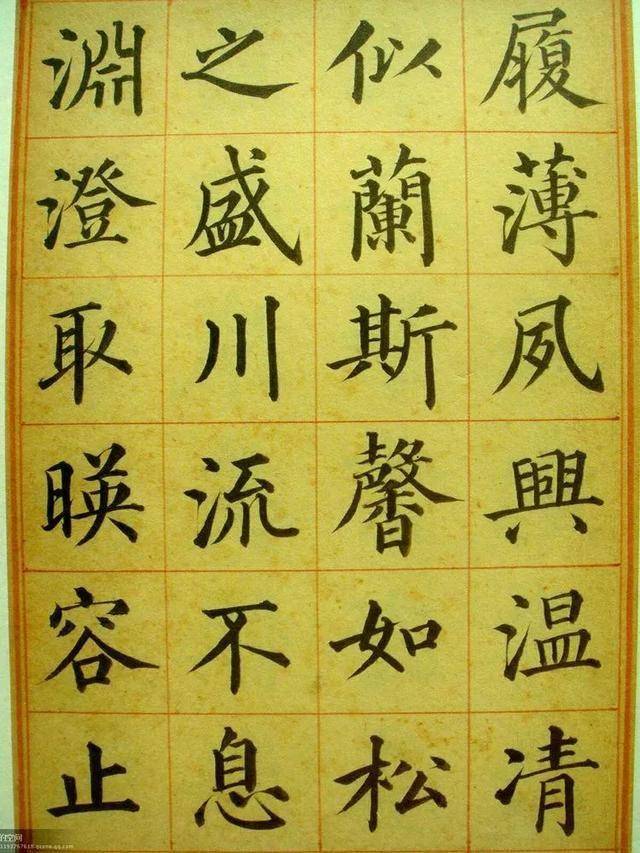 履薄夙興温凊
似蘭斯馨如松
之盛川流不息
淵澄取暎容止
的空间